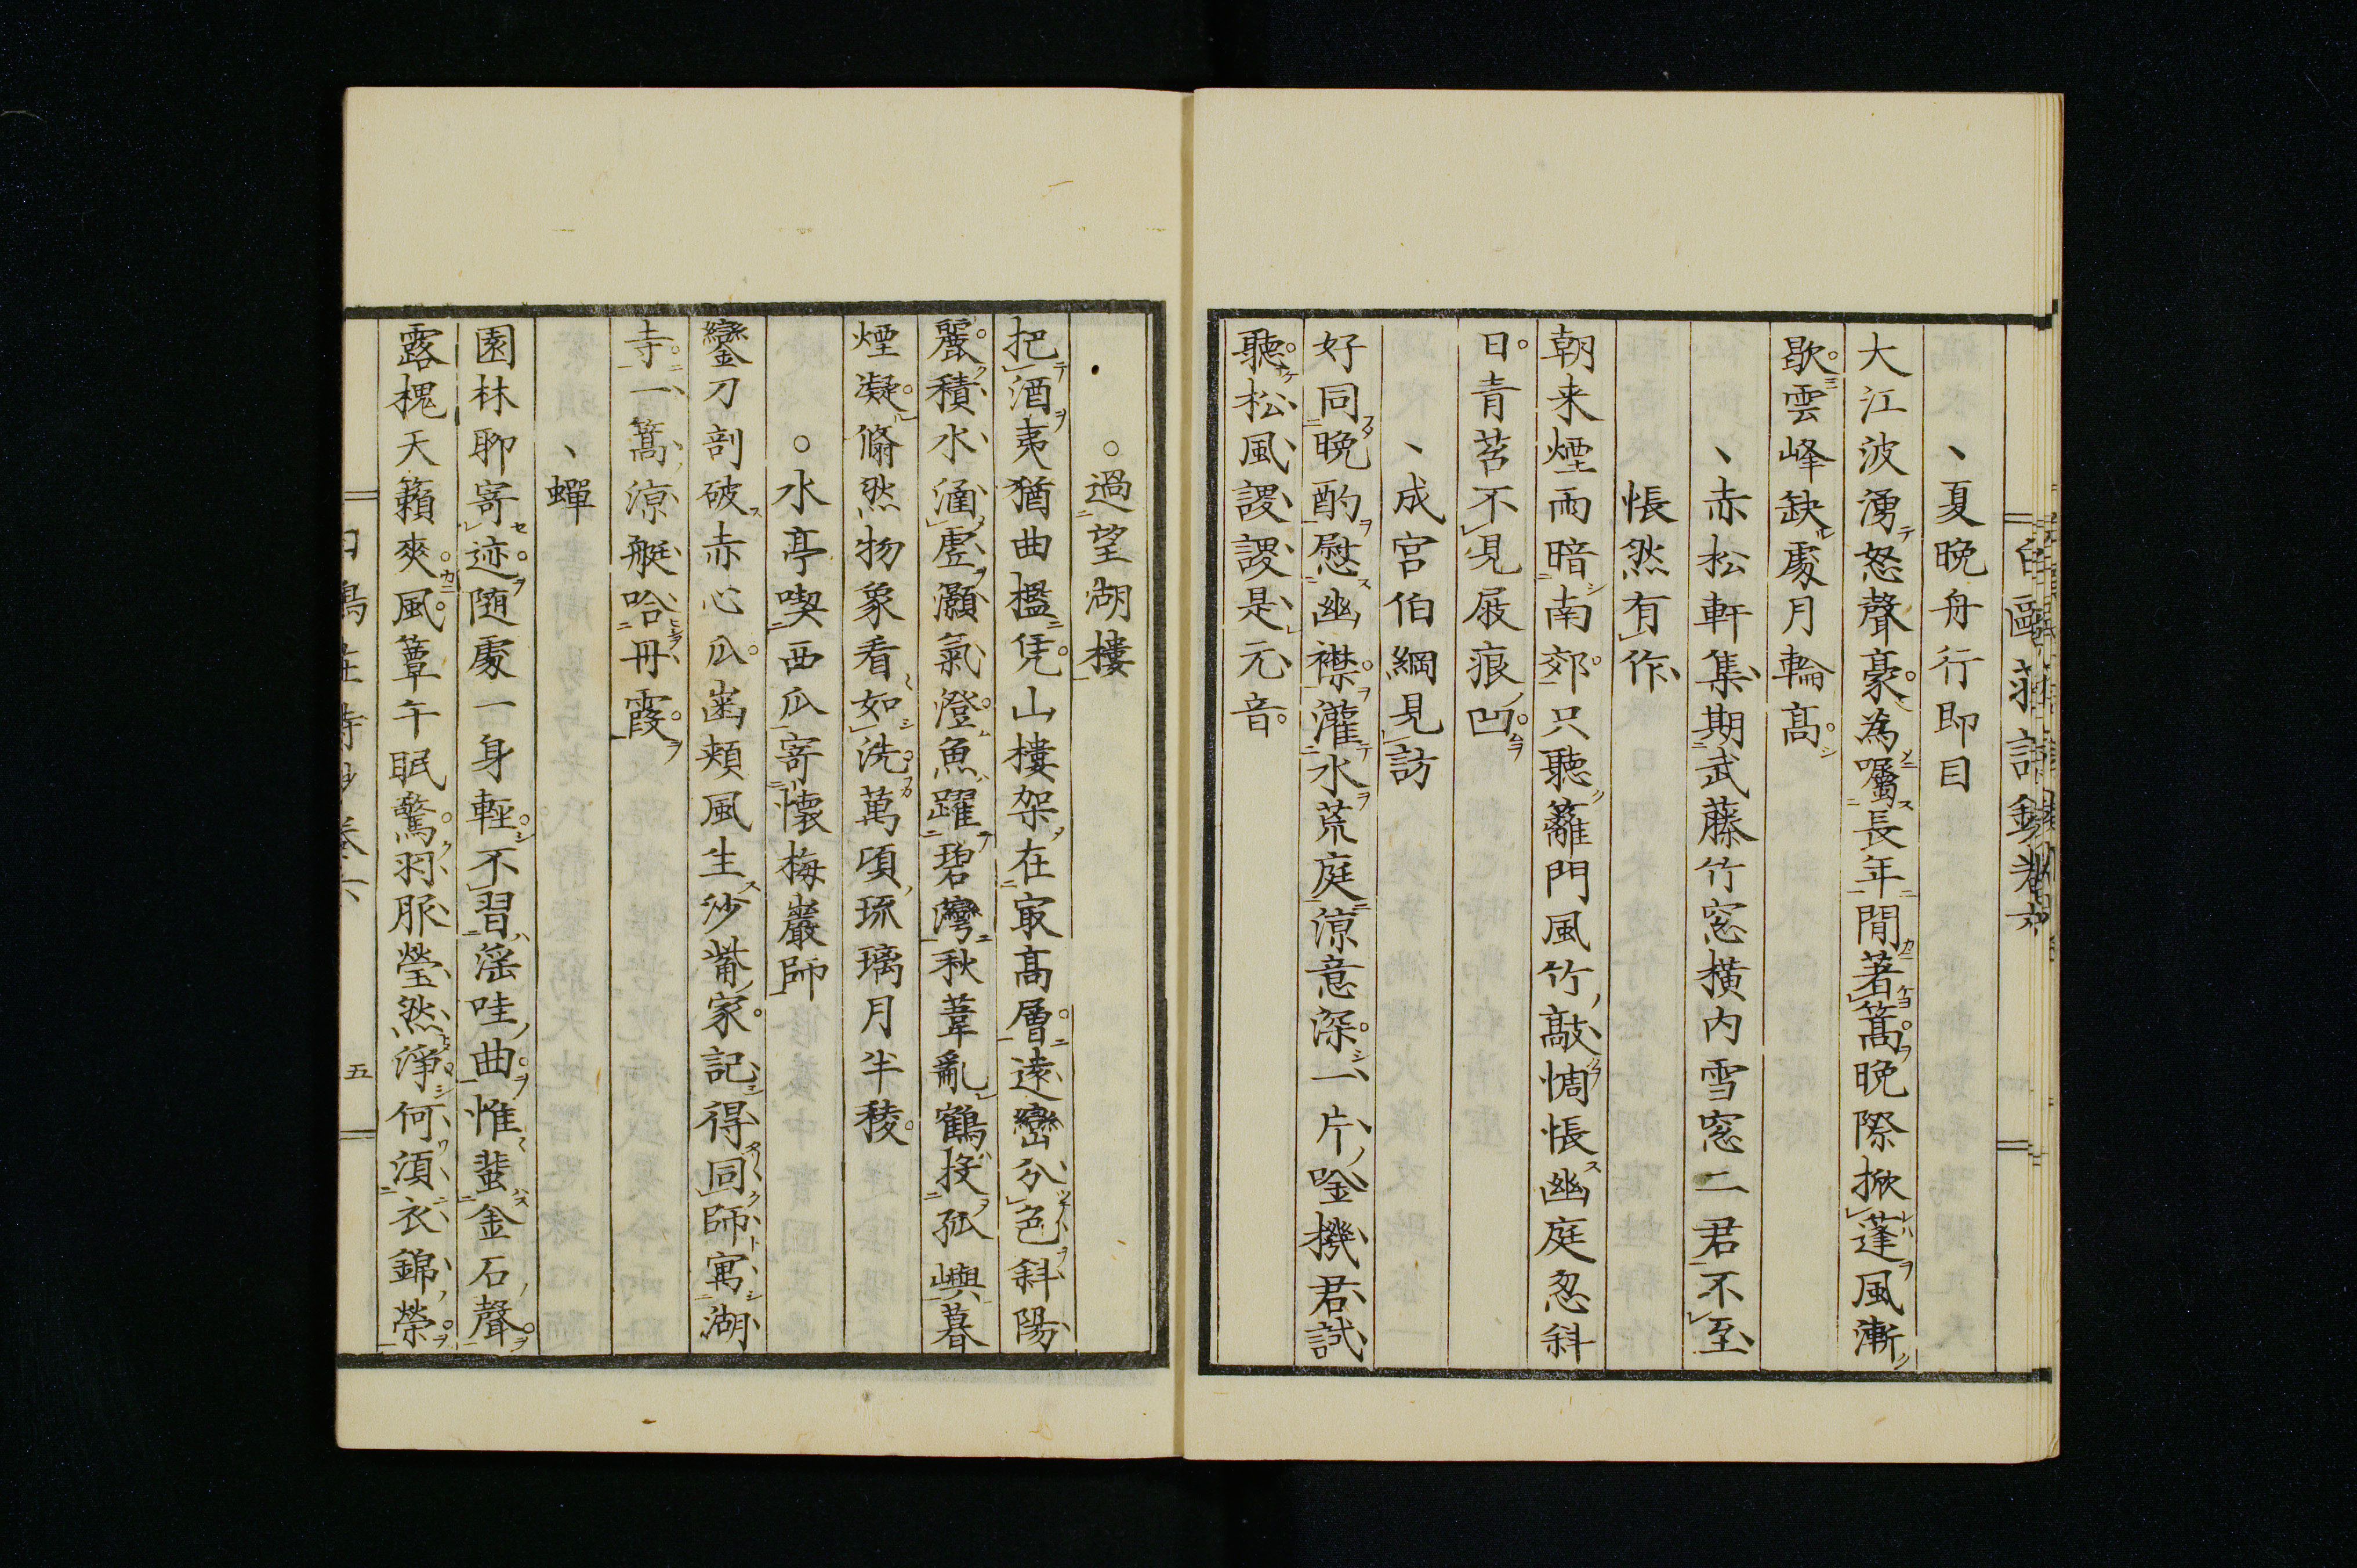 夏晩舟行即目
大江波湧怒聲豪為囑長年閒著篙晩際掀蓬風漸
歇雲峰缺處月輪高
赤松軒集期武藤竹窓横内雪窓二君不至
悵然有作
朝来煙雨暗南郊只聽籬門風竹敲惆悵幽庭忽斜
日青苔不見屐痕凹
成宮伯綱見訪
好同晩酌慰幽襟灌水荒庭涼意深一片唫機君試
聽松風謖謖是元音
過望湖樓
把酒夷猶曲檻凭山樓架在㝡高層遠巒分色斜陽
麗積水涵虛灝氣澄魚躍碧灣秋葦亂鶴投孤嶼暮
煙凝翛然物象看如洗萬頃琉璃月半稜
水亭喫西瓜寄懷梅巖師
鑾刀剖破赤心瓜齒頰風生沙觜家記得同師寓湖
寺一篙涼艇哈冊霞
蟬
園林聊寄迹随處一身輕不習淫哇曲惟蜚金石聲
露槐天籟爽風簟午眠驚羽脈瑩然淨何須衣錦榮
五